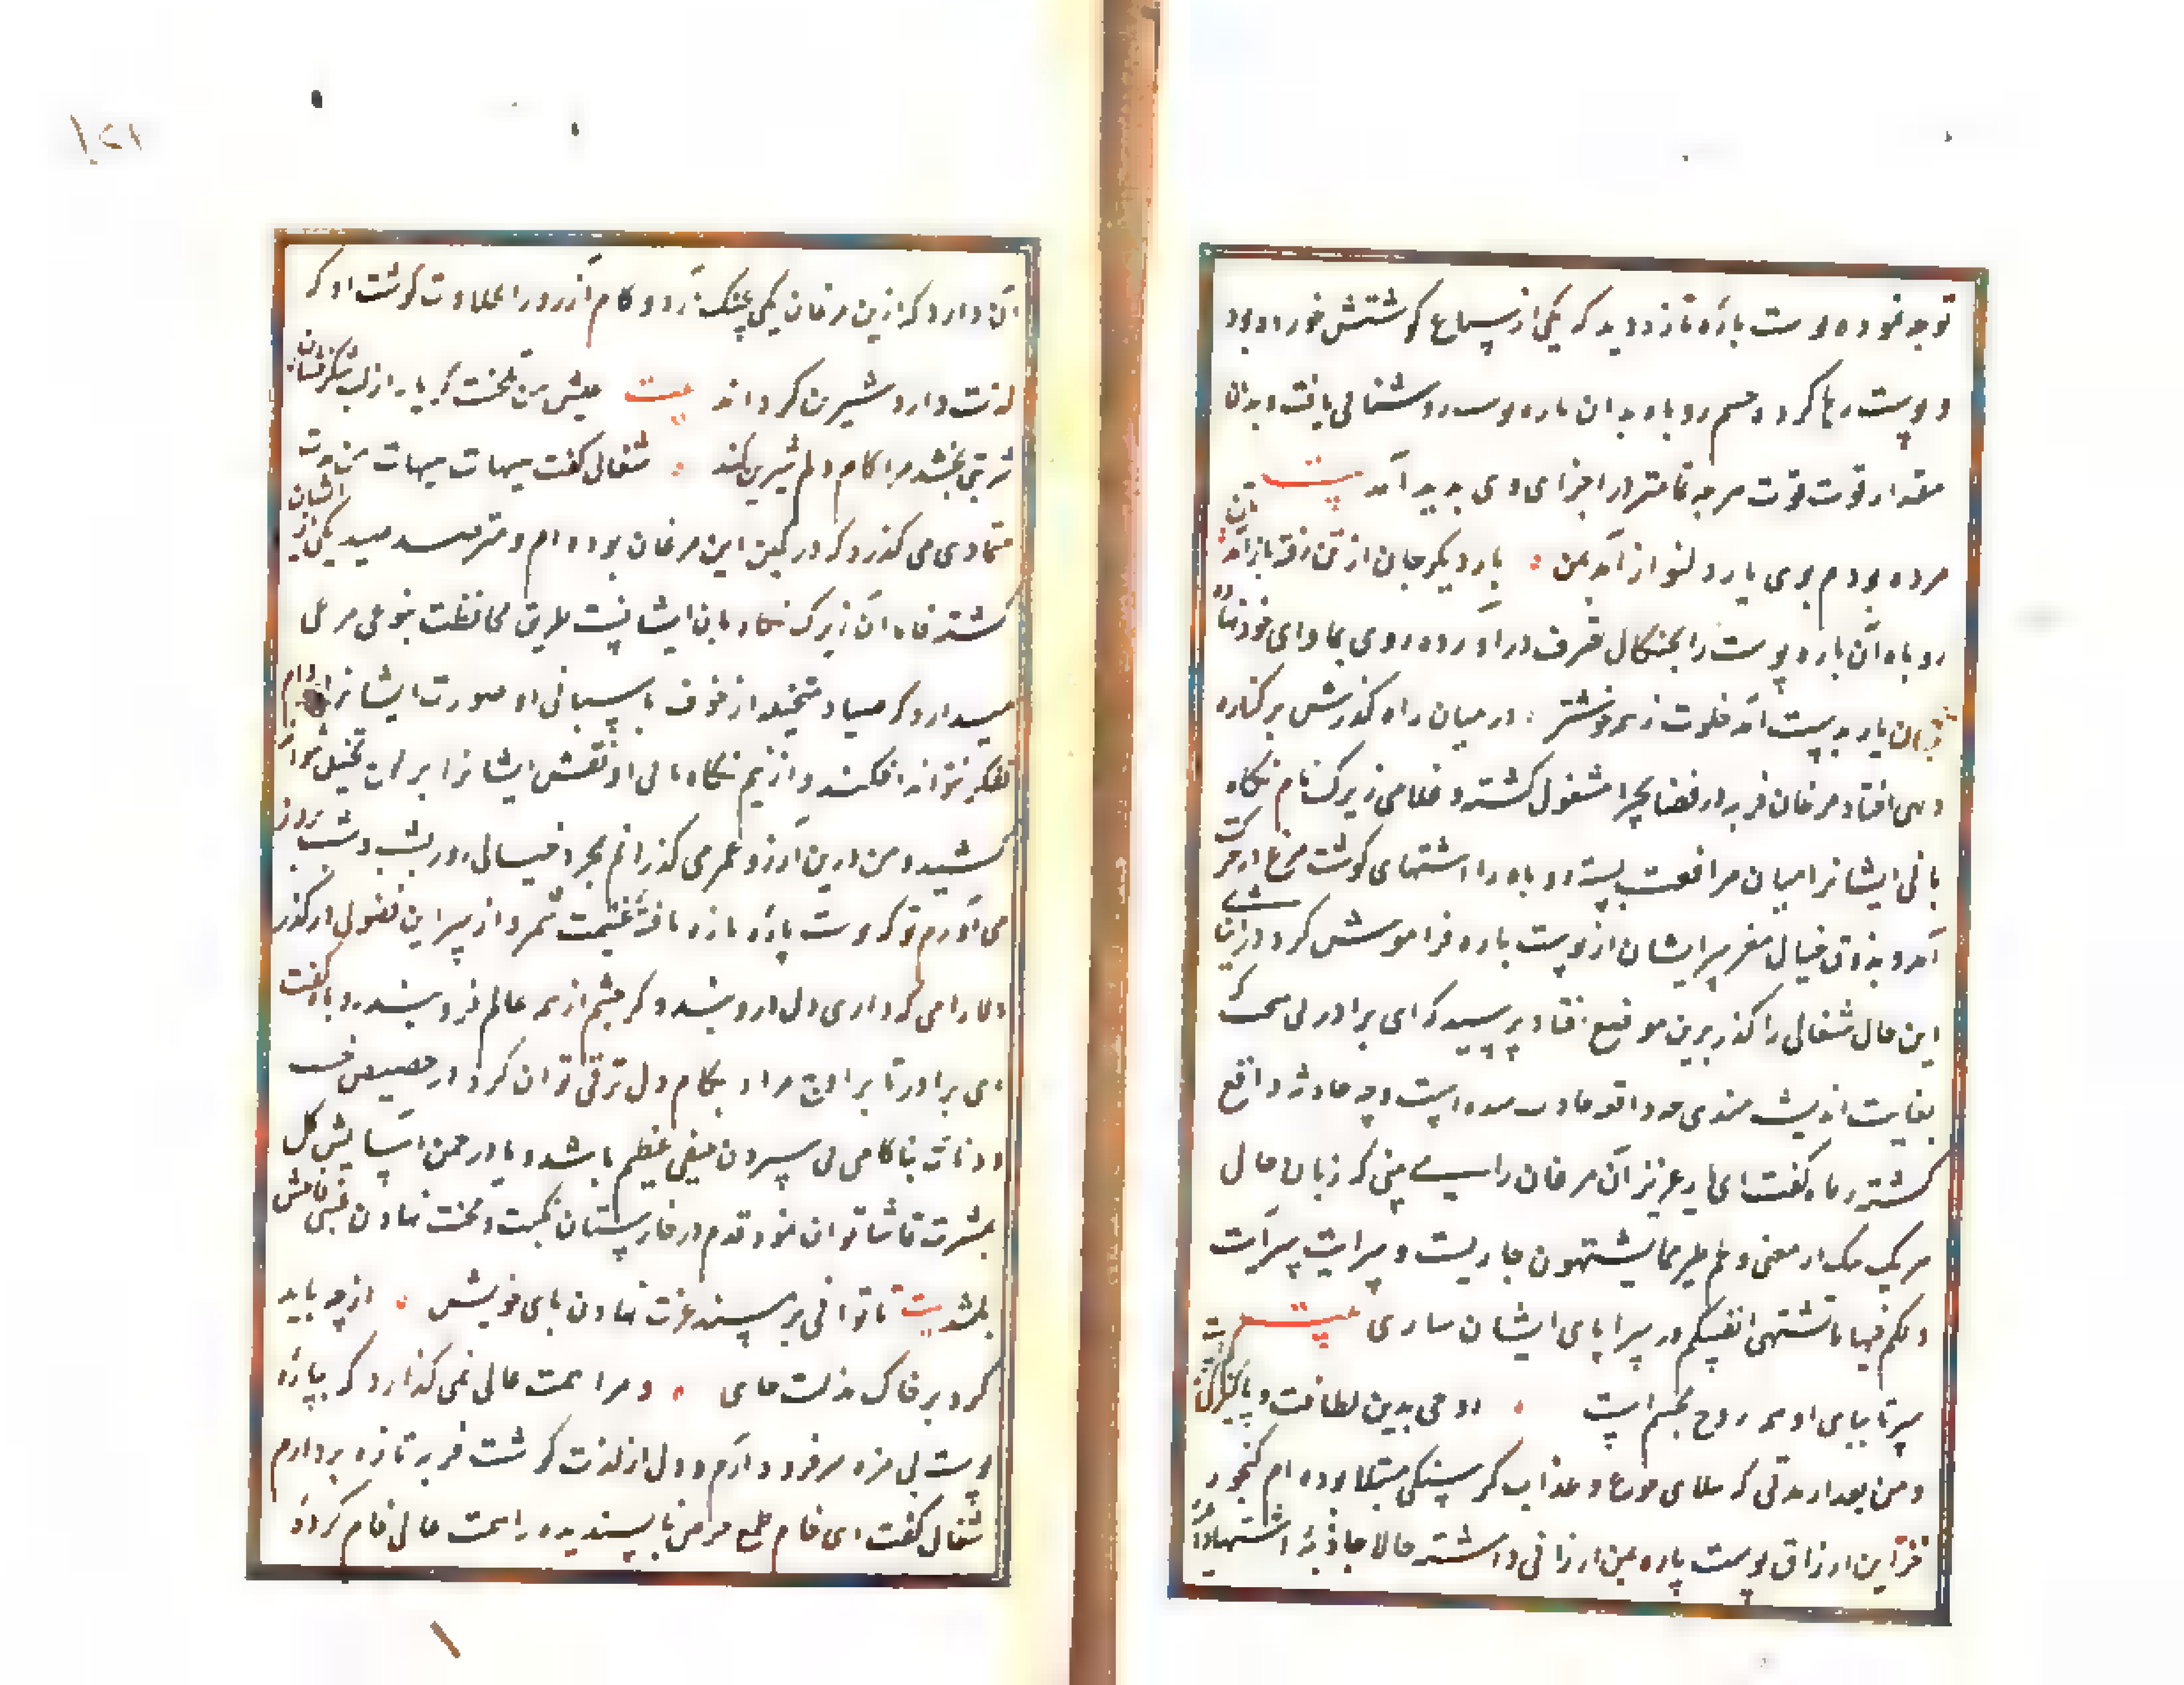 توجه نموده پوست پاره تازه دید که یکی از سباع گوشتش خورده بود
و پوست رها کرده چشم روباه بدان پاره پوست روشنائی یافت و بدان
مقدار قوت قوت هر چه تمامتر در اجزای وی پدید آمد بیت
مرده بودم بوی یار دلنواز آمد بمن بار دیگر جان از تن رفته باز آمد
روباه آن پاره پوست را بچنگال تصرف درآورده روی بماوای خود نهاد
یار بدست آمد خلوت ز همه خوشتر در میان راه گذرش بر کناره
دهی افتاد مرغان فربه در فضا بچرا مشغول گشته و غلامی زیرک نام نگاه
بانی ایشانرا میان مراقبت بسته روباه را اشتهای گوشت مرغ در حرکت
آمد و بذوق خیال مغز سر ایشان از پوست پاره فراموش کرد در اثنای
این حال شغالی را گذر برین موضع افتاد پرسید که ای برادر می بینمت که
بغایت اندیشه مندی چه واقعه حادث شده است و چه حادثه واقع
گشته روباه گفت ای یار عزیز آن مرغان را می بینی که زبان حال
هر یک از معنی و لحم طیر مما یشتهون جاریست و سرایت
و لکم فیها ما تشتهی انفسکم در سراپای ایشان ساری بیت
سر تا بپای او همه روح مجسم است روحی بدین لطافت و پاکیزگی
و من بعد از مدتی که ببلای جوع و عذاب گرسنگی مبتلا بوده ام گنجور
خزاین ارزاق پوست پاره بمن ارزانی داشته حالا جاذبه اشتها
آن دارد که ازین مرغان یکی بچنگ آرد و کام آرزو را بحلاوت گوشت او که
لذت دارد شیرین گرداند بیت عیش من تلخست گر یار از لب شکرفشان
شربتی بخشد مرا کام دلم شیرین کند شغال گفت هیهات هیهات من مدت
متمادی می گذرد که در کمین این مرغان بوده ام و مترصد صید یکی از ایشان
گشته فاما آن زیرک نگاهبان ایشانست طریق محافظت بنوعی مرعی
میدارد که صیاد متخیله از خوف پاسبانی او صورت ایشانرا بدام
تفکر نتواند افکند و از بیم نگاهبانی او نقش ایشانرا بر لوح تخیل نتواند
کشید و من درین آرزو عمر می گذرانم بمجرد خیالی روز بشب و شب بروز
می آورم تو که پوست پاره تازه یافته غنیمت شمر و از سر این فضول درگذر
دلارامی که داری دل درو بند دگر چشم از همه عالم فرو بند روباه گفت
ای برادر تا بر اوج مراد بکام دل ترقی توان کرد در حضیض خست
و دنائت بناکامی پی سپردن حیفی عظیم باشد و با در چمن آسایش گل
بعشرت تماشا توان نمود قدم در خارستان نکبت و محنت نهادن غبنی فاحش
باشد بیت تا توانی بر سپند عزت نهادن پای خویش از چه باید
کرد بر خاک مذلت جای و مرا همت عالی نمی گذارد که بپاره
پوست بی مزه سر فرود آرم و دل از لذت گوشت فربه تازه بردارم
شغال گفت ای خام طمع حرص ناپسندیده را همت عالی نام کرده